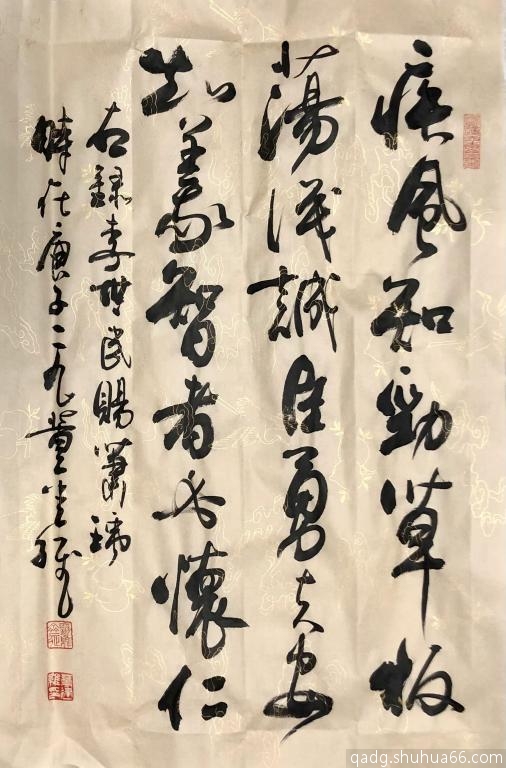 疾風知勁草板
蕩識誠臣勇夫安
知義智者必懷仁
右録李世民賜蕭瑀
時在庚子二九
qadg.shuhua66.com